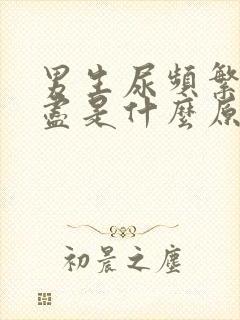 男生尿頻繁
盡是什麼原
初晨之塵